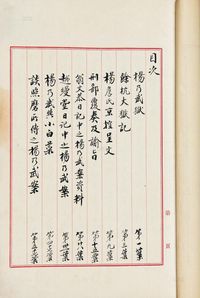 目次
楊乃武獄 第一葉
餘杭大獄記 第三葉
楊詹氏京控呈文 第九葉
刑部覆奏及諭旨 第十五葉
翁文恭日記中之楊乃武案資料
越縵堂日記中之楊乃武案
楊乃武與小白菜
談照磨所傳之楊乃武案